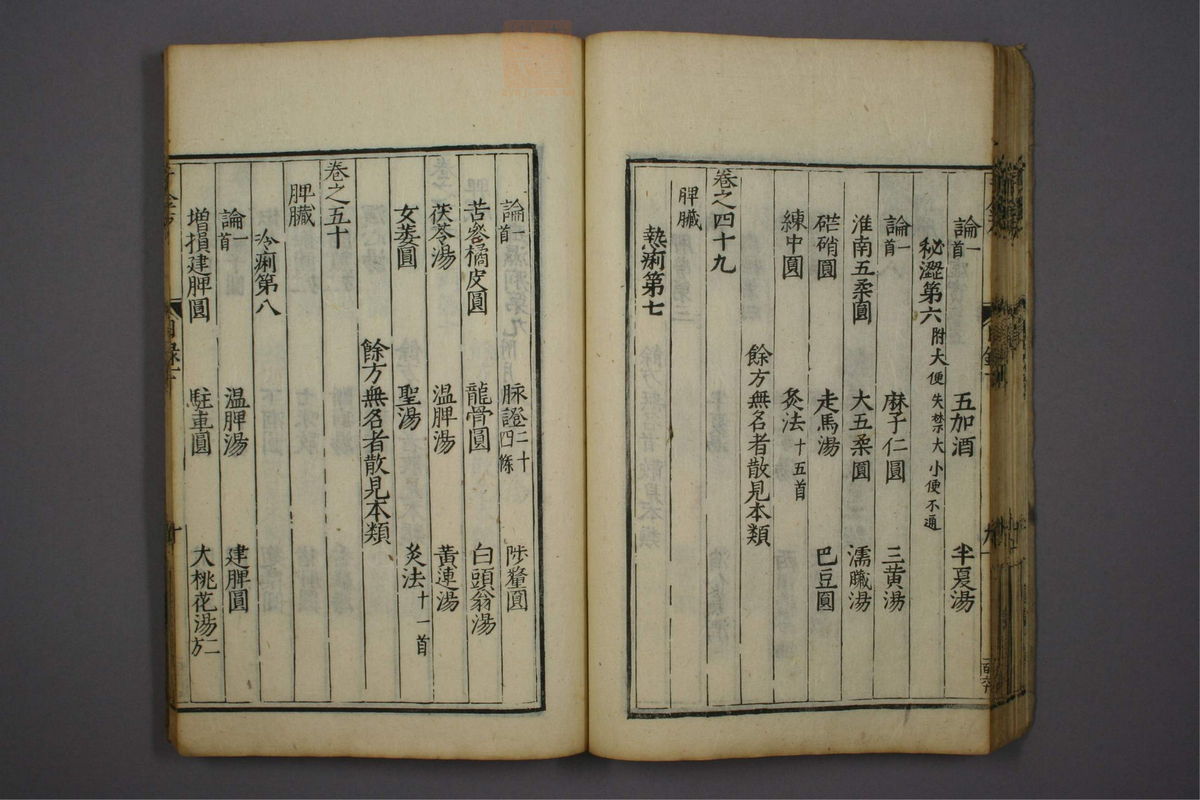 論一首 五加酒 半夏湯
秘澀第六 附大便失禁大小便不通
論一首 麻子仁圓 三黃湯
淮南五柔圓 大五柔圓 濡臟湯
硭硝圓 走馬湯 巴豆圓
練中圓 灸法十五首
餘方無名者散見本類
卷之四十九
脾臟
熱痢第七
論一首 脉證二十四條 陟釐圓
苦參橘皮圓 龍骨圓 白頭翁湯
茯苓湯 溫脾湯 黃連湯
女萎圓 聖湯 灸法十一首
餘方無名者散見本類
卷之五十
脾臟
冷痢第八
論一首 溫脾湯 建脾圓
增損建脾圓 駐車圓 大桃花湯二方